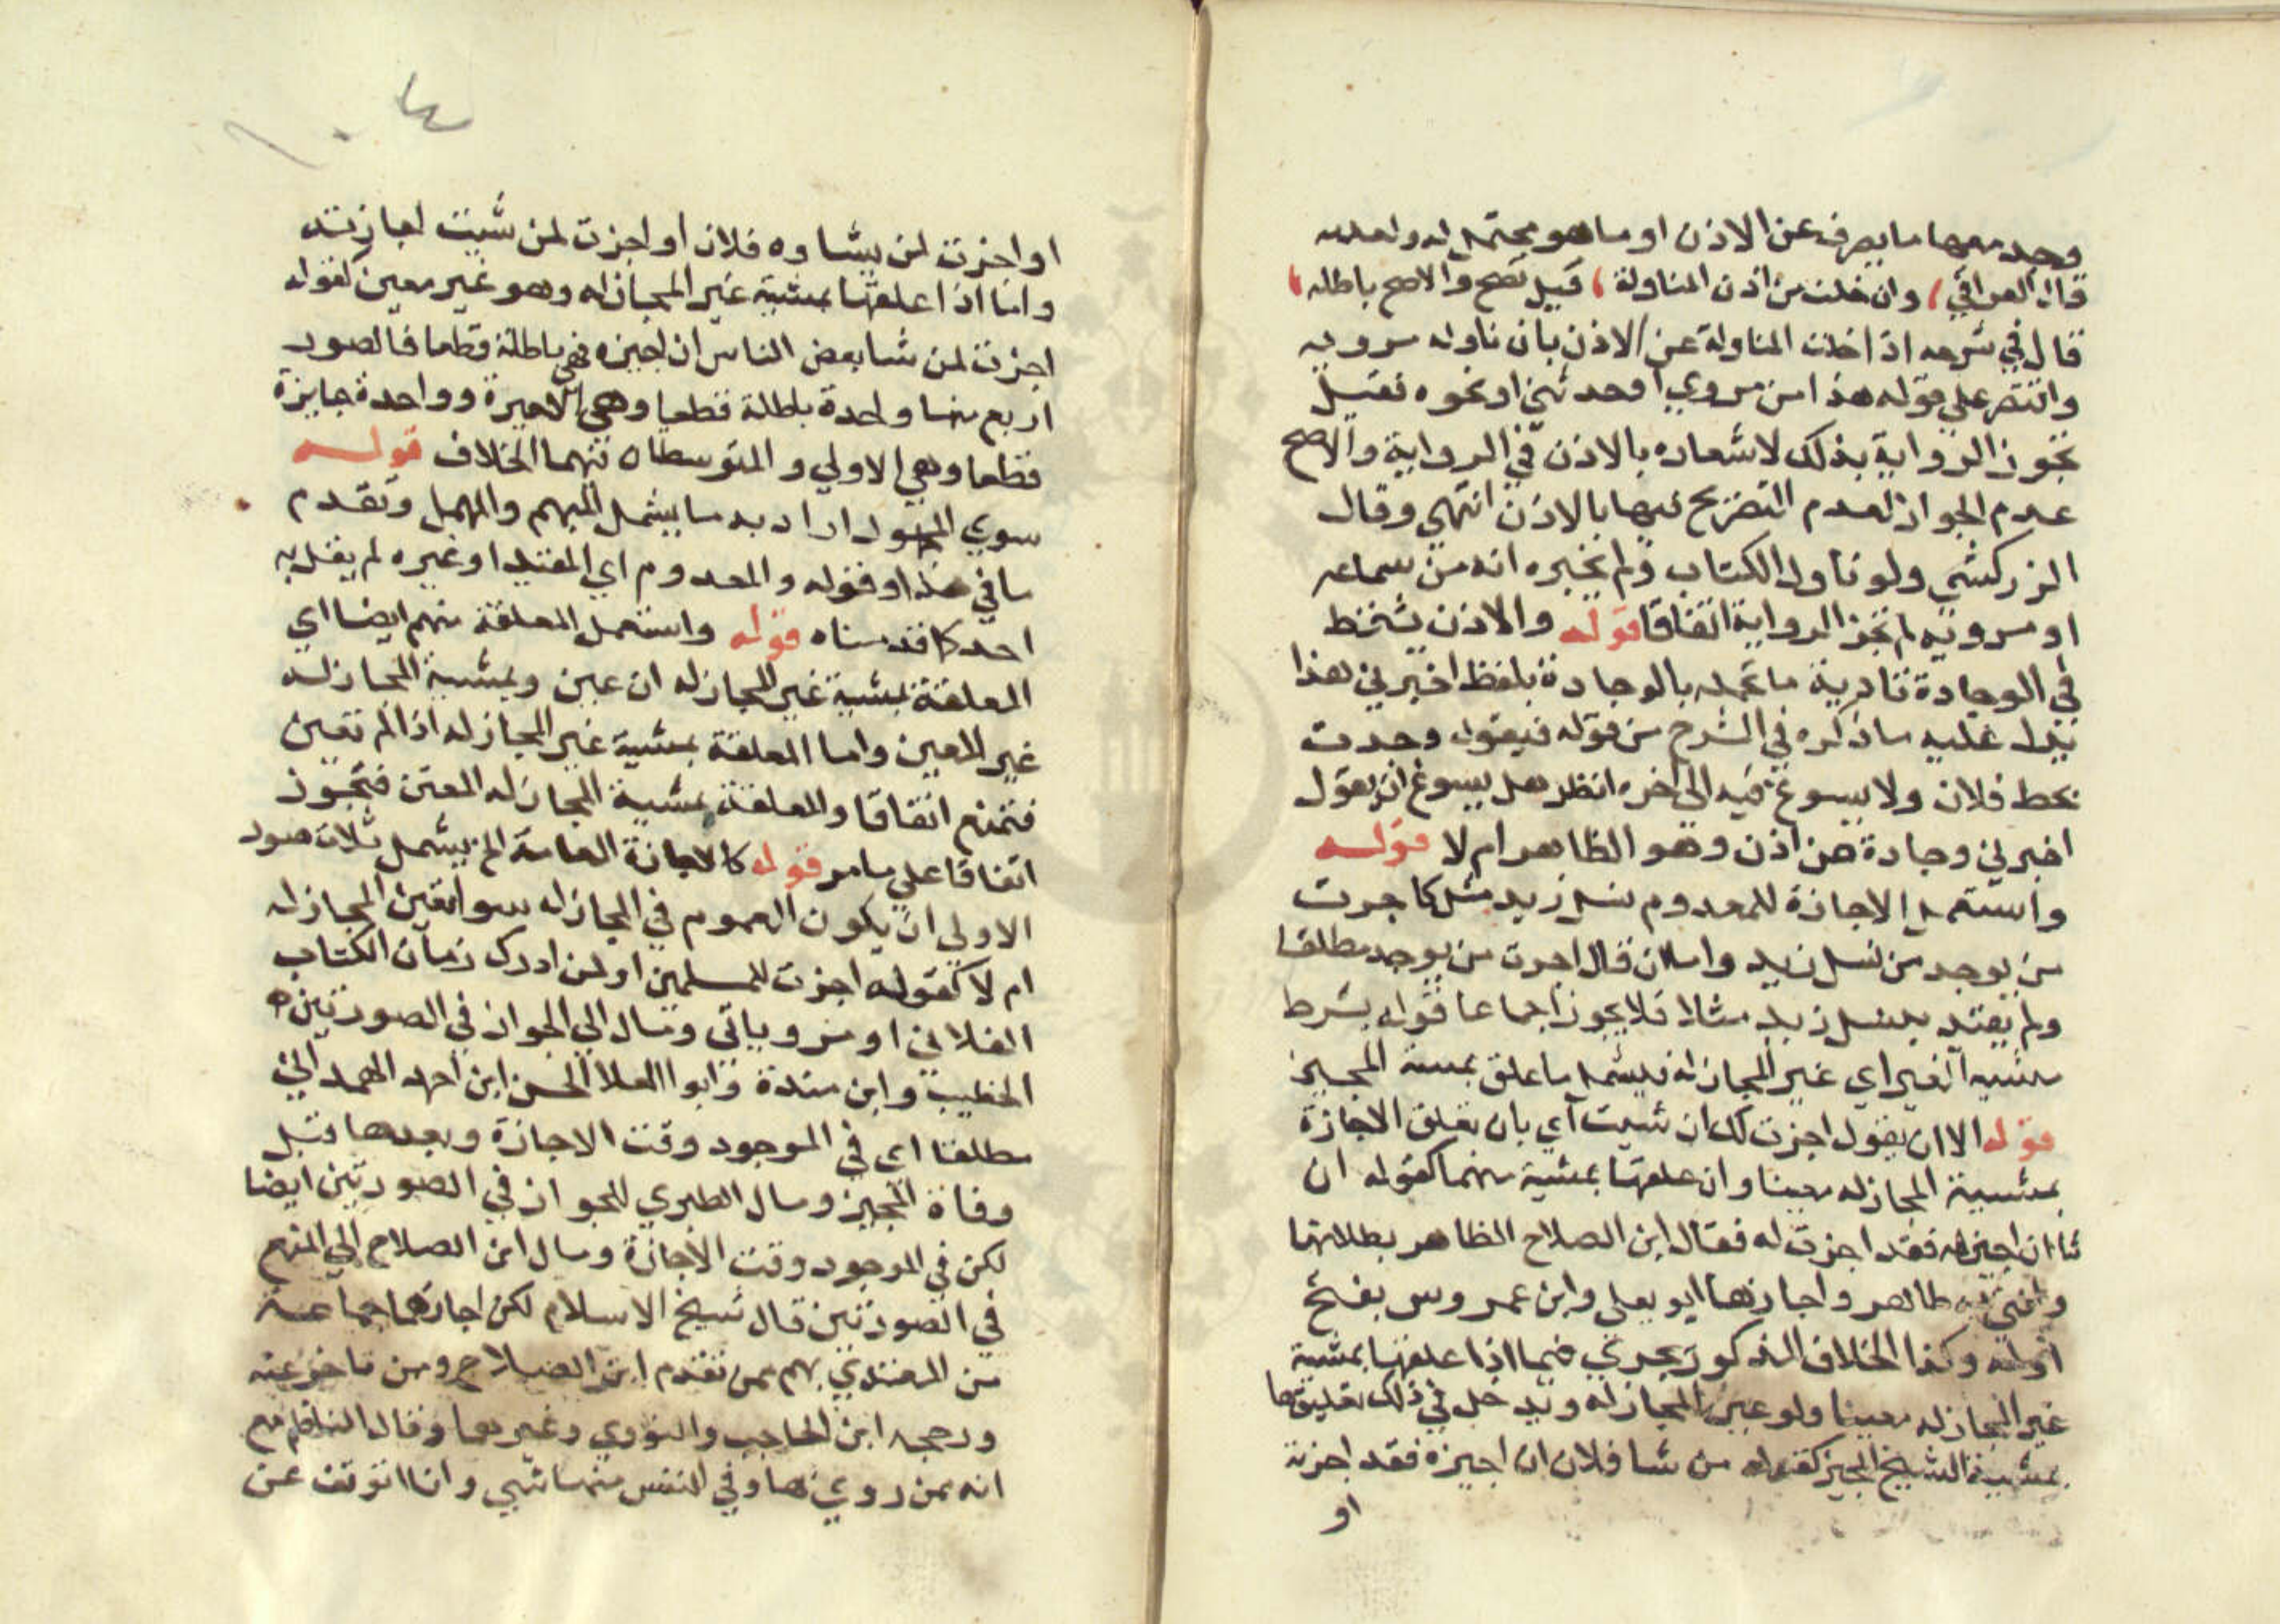 وجد معها ما يصرف عن الاذن او ما هو محتمل له ولعدمه
قال العراقي وان خلت من اذن المناولة قيل تصح والاصح باطله
قال في شرحه اذا خلت المناولة عن الاذن بان ناوله مرويه
واقتصر على قوله هذا من مروي او حدثني او نحوه فقيل
تجوز الرواية بذلك لاشعاره بالاذن في الرواية والاصح
عدم الجواز لعدم التصريح فيها بالاذن انتهي وقال
الزركشي ولو ناوله الكتاب ولم يخبره انه من سماعه
او مرويه لم تجز الرواية اتفاقا قوله والاذن يشترط
في الوجادة تادية ما تحمله بالوجادة بلفظ اخبرني هذا
يدل عليه ما ذكره في الشرح من قوله فيقول وجدت
بخط فلان ولا يسوغ فيه الى اخره انظر هل يسوغ ان يقول
اخبرني وجادة عن اذن وهو الظاهر ام لا قوله
واستعمل الاجازة للمعدوم نسل زيد مثل كاجزت
من يوجد من نسل زيد واما ان قال اجزت من يوجد مطلقا
ولم يقيد بنسل زيد مثلا فلا يجوز اجماعا قوله بشرط
مشيه الغير اي غير المجاز له فيشمل ما علق بمشية المجيز
قوله الا ان يقول اجزت لك ان شيت اي بان تعلق الاجازة
بمشية المجاز له معينا وان علقها بمشية مبهما كقوله ان
شا ان اجيز له فقد اجزت له فقال ابن الصلاح الظاهر بطلانها
وافتى به طاهر واجازها ابو يعلى وابن عمروس بفتح
اوله وكذا الخلاف المذكور يجري فيما اذا علقها بمشية
غير المجاز له معينا ولو عين المجاز له ويدخل في ذلك تعليقها
بمشية الشيخ المجيز كقوله من شا فلان ان اجيزه فقد اجزته
او
او اجزت لمن يشاوه فلان او اجزت لمن شيت اجازته
واما اذا علقها بمشية غير المجاز له وهو غير معين كقوله
اجزت لمن شا بعض الناس ان اجيزه فهي باطلة قطعا فالصور
اربع منها واحدة باطلة قطعا وهي الاخيرة وواحدة جايزة
قطعا وهي الاولي والمتوسطاه فيهما الخلاف قوله
سوي المجهول اراد به ما يشمل المبهم والمهمل وتقدم
ما في هذا وقوله والمعدوم اي المقيد او غيره لم يقل به
احد كما قدمناه قوله واستعمل المعلقة منهم ايضا اي
المعلقة بمشية غير المجاز له ان عين وبمشية المجاز له
غير المعين واما المعلقة بمشية غير المجاز له اذا لم تعين
فتمتنع اتفاقا والمعلقة بمشية المجاز له المعين فتجوز
اتفاقا علي ما مر قوله كالاجازة العامة الخ يشمل ثلاث صور
الاولي ان يكون العموم في المجاز له سوا تعين المجاز له
ام لا كقوله اجزت للمسلمين او لمن ادرك زمان الكتاب
الفلاني او مروياتي ومال الي الجواز في الصورتين
الخطيب وابن مندة وابوا العلا الحسن ابن احمد الهمداني
مطلقا اي في الموجود وقت الاجازة وبعدها قبل
وفاة المجيز ومال الطبري للجواز في الصورتين ايضا
لكن في الموجود وقت الاجازة ومال ابن الصلاح الي المنع
في الصورتين قال شيخ الاسلام لكن اجازهما جماعة
من المقتدي بهم ممن تقدم ابن الصلاح ومن تاخر عنه
ورجحه ابن الحاجب والنووي وغيرهما وقال الناظم مع
انه ممن روي بها وفي النفس منها شي وانا اتوقف عن